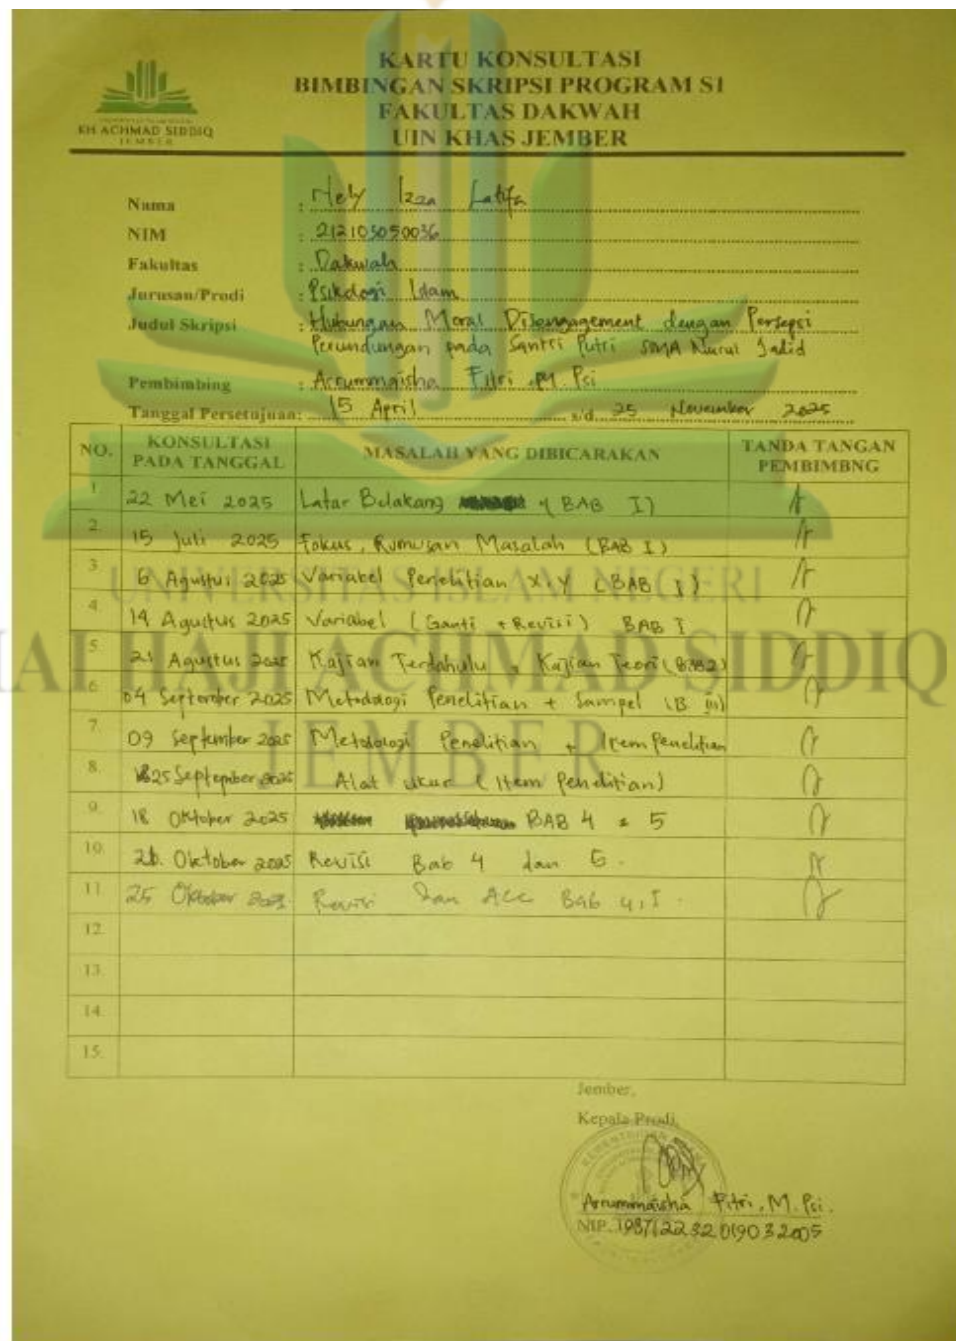 KARTU KONSULTASI
BIMBINGAN SKRIPSI PROGRAM S1
FAKULTAS DAKWAH
UIN KHAS JEMBER
KH ACHMAD SIDDIQ
JEMBER
Nama : Hely Izza Latifa
NIM : 212103050036
Fakultas : Dakwah
Jurusan/Prodi : Psikologi Islam
Judul Skripsi : Hubungan Moral Disengagement dengan Persepsi
Perundungan pada Santri Putri SMA Nurul Jadid
Pembimbing : Arrummaisha Fitri, M. Psi
Tanggal Persetujuan: 15 April s/d 25 November 2025
NO. KONSULTASI PADA TANGGAL MASALAH YANG DIBICARAKAN TANDA TANGAN PEMBIMBNG
1. 22 Mei 2025 Latar Belakang (BAB I)
2. 15 Juli 2025 Fokus, Rumusan Masalah (BAB I)
3. 6 Agustus 2025 Variabel Penelitian X, Y (BAB I)
4. 14 Agustus 2025 Variabel (Ganti + Revisi) BAB I
5. 21 Agustus 2025 Kajian Terdahulu, Kajian Teori (BAB2)
6. 04 September 2025 Metodologi Penelitian + Sampel (B III)
7. 09 September 2025 Metodologi Penelitian + Item Penelitian
8. 25 September 2025 Alat ukur (Item Penelitian)
9. 18 Oktober 2025 BAB 4 & 5
10. Oktober 2025 Revisi Bab 4 dan 5.
11. 25 Oktober 2025. Revisi dan Acc Bab 4,5.
12.
13.
14.
15.
UNIVERSITAS ISLAM NEGERI
AI HAJI ACHMAD SIDDIQ
JEMBER
Jember,
Kepala Prodi,
Arrummaisha Fitri, M. Psi.
NIP. 198712232019032005